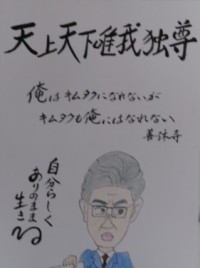 天上天下唯我独尊
俺はキムタクになれないが
キムタクも俺にはなれない
善休寺
自分らしく
ありのまま
生きる